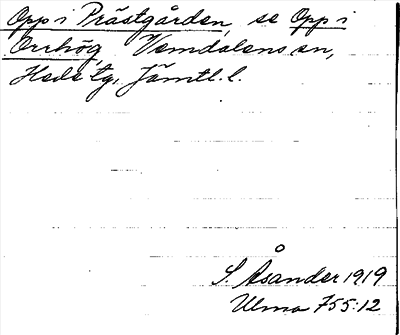 Opp i Prästgården, se Opp i
Orrhög Vemdalens sn,
Hede tg, Jämtl. l.
S. Åsander 1919
Ulma 755:12